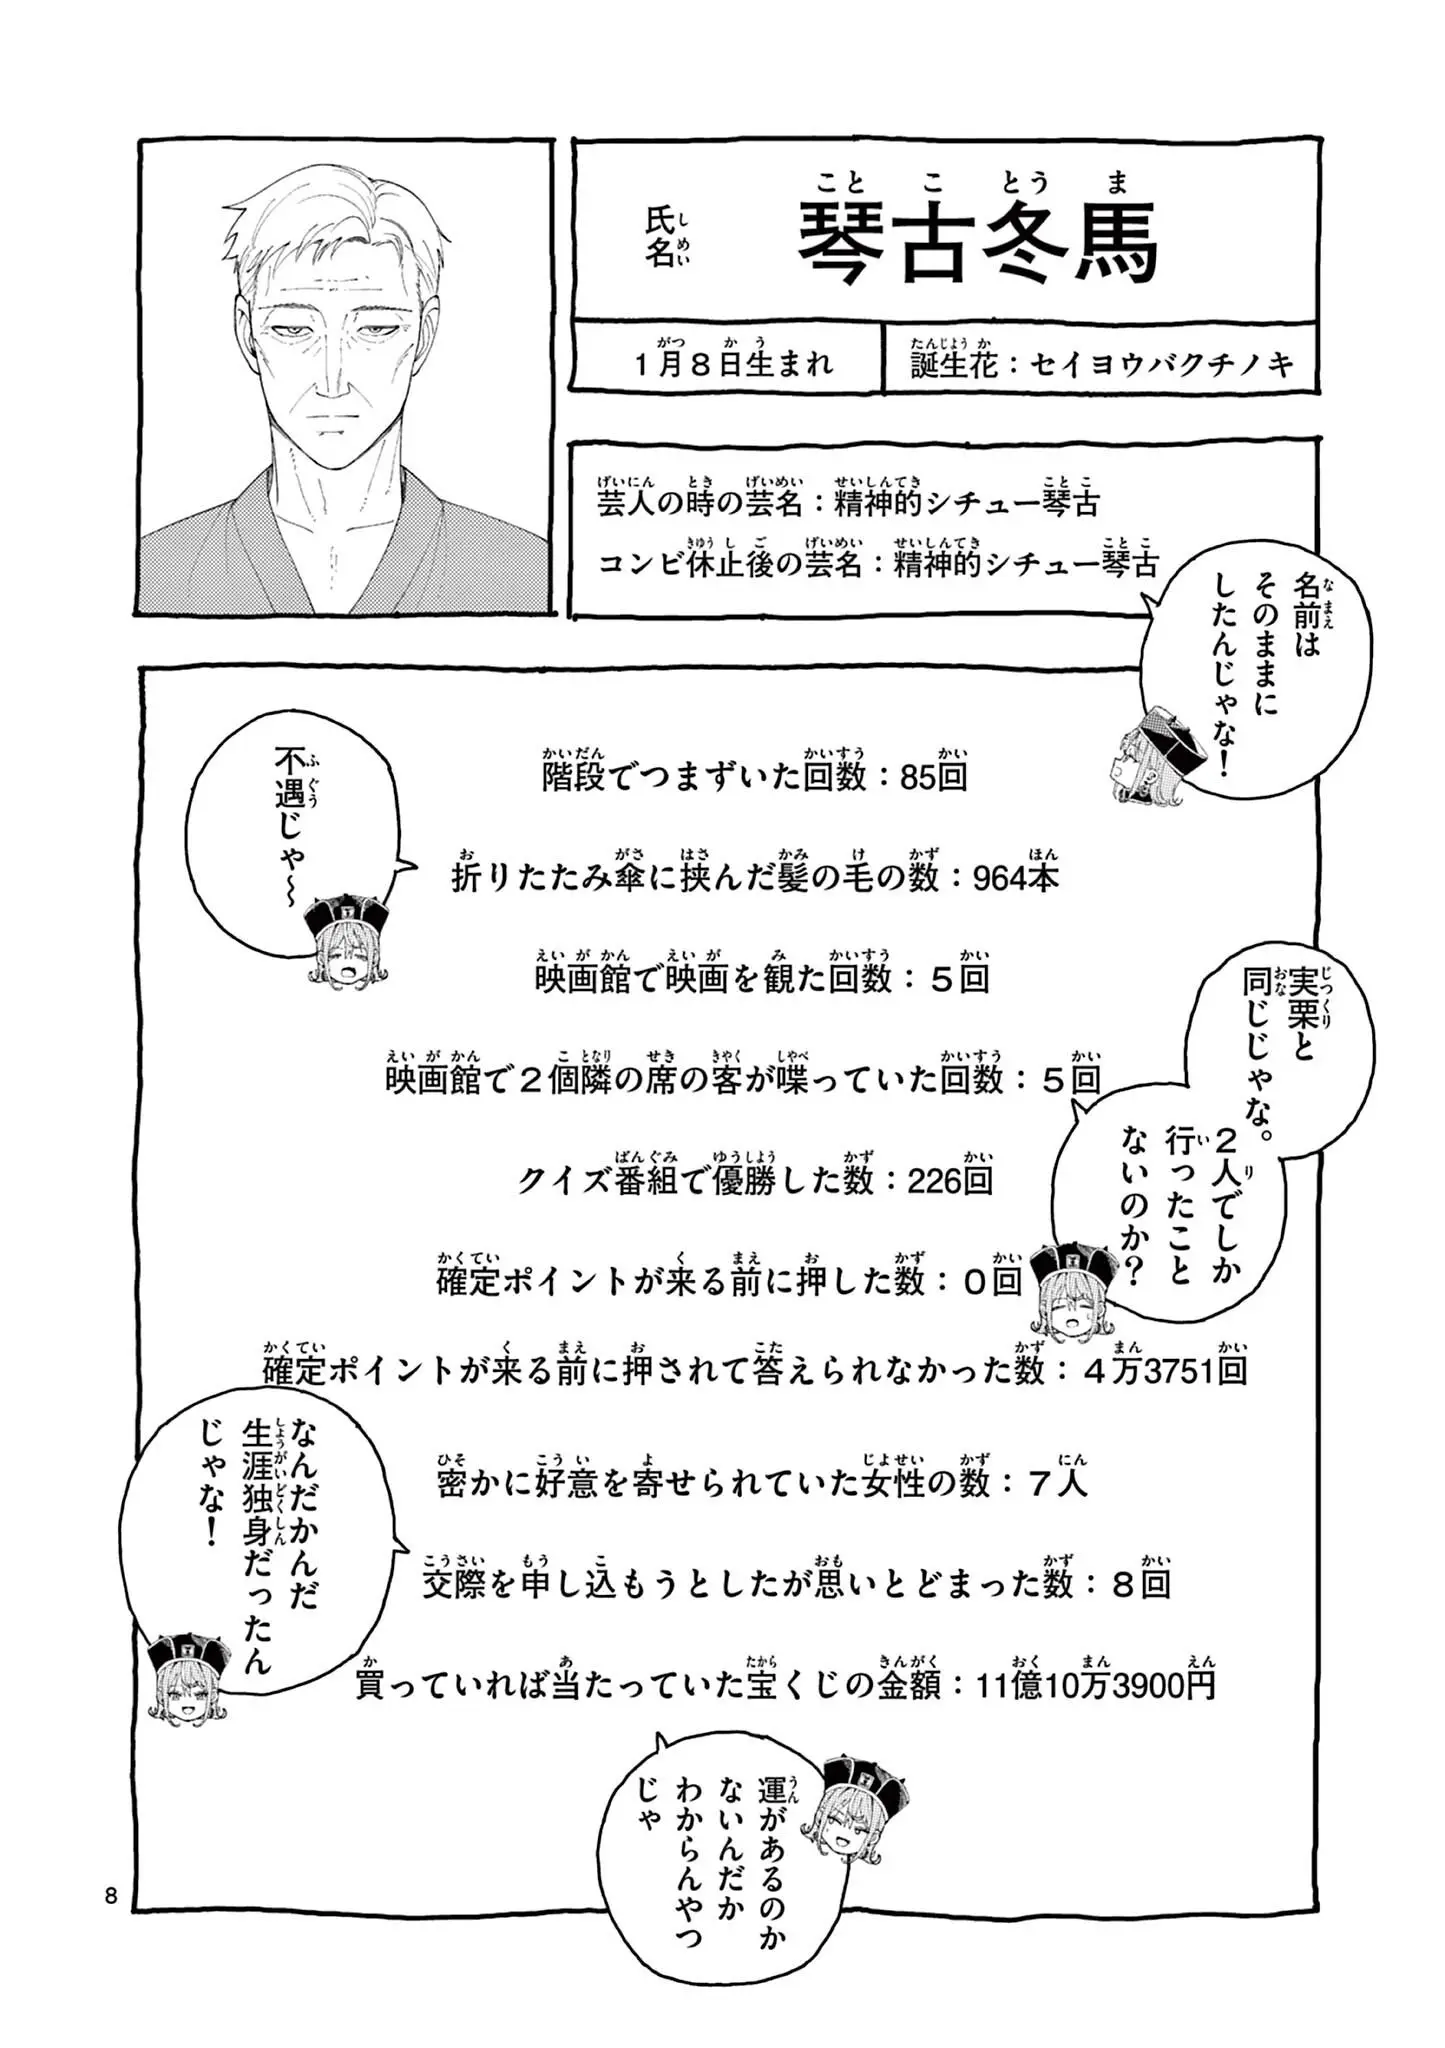 氏名
琴古冬馬
1月8日生まれ
誕生花：セイヨウバクチノキ
芸人の時の芸名：精神的シチュー琴古
コンビ休止後の芸名：精神的シチュー琴古
名前は
そのままに
したんじゃな！
階段でつまずいた回数：85回
不遇じゃ〜
折りたたみ傘に挟んだ髪の毛の数：964本
映画館で映画を観た回数：5回
映画館で2個隣の席の客が喋っていた回数：5回
実栗と
同じじゃな。
2人でしか
行ったこと
ないのか？
クイズ番組で優勝した数：226回
確定ポイントが来る前に押した数：0回
確定ポイントが来る前に押されて答えられなかった数：4万3751回
密かに好意を寄せられていた女性の数：7人
なんだかんだ
生涯独身だったん
じゃな！
交際を申し込もうとしたが思いとどまった数：8回
買っていれば当たっていた宝くじの金額：11億10万3900円
運があるのか
ないんだか
わからんやつ
じゃ
8